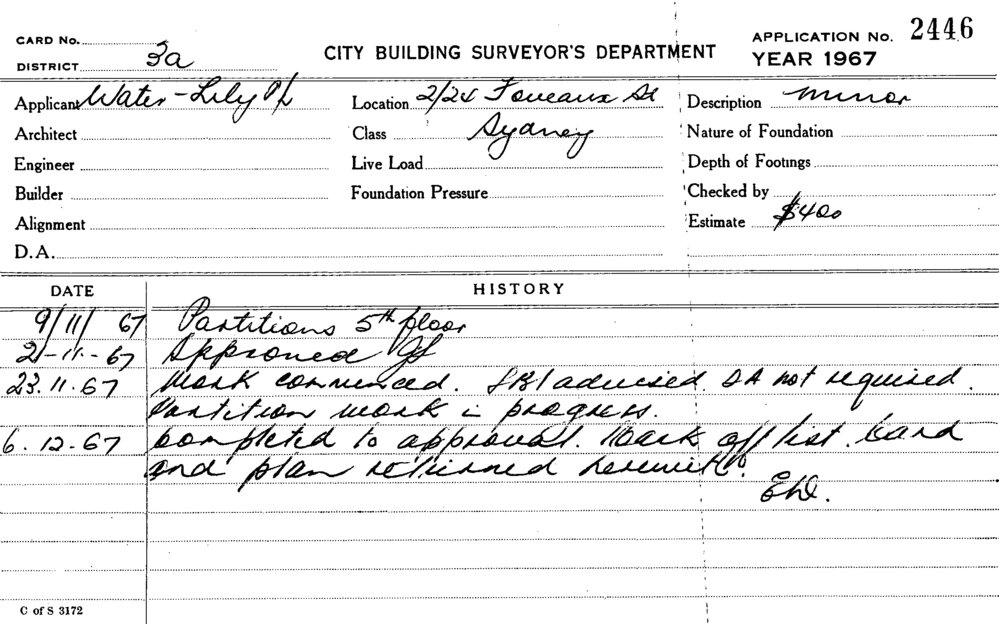 CARD No.
DISTRICT 3a
CITY BUILDING SURVEYOR'S DEPARTMENT
APPLICATION No. 2446
YEAR 1967
Applicant Water-Lily P/L
Location 2/24 Foveaux St
Description minor
Architect
Class Sydney
Nature of Foundation
Engineer
Live Load
Depth of Footings
Builder
Foundation Pressure
Checked by
Alignment
Estimate $400
D.A.
DATE
HISTORY
9/11/67 Partitions 5th floor
21-11-67 Approved
23.11.67 Work commenced. advised DA not required.
Partition work in progress.
6.12.67 Completed to approval. Mark off list. Card
and plan returned herewith.
C of S 3172